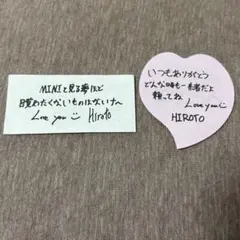 MINIと見る夢ほど
覚めたくないものはないナヘ
Love you Hiroto
いつもありがとう
どんな時も一緒だよ
頼ってね
Love you
HIROTO